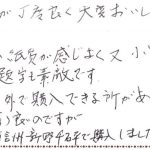 が丁度良く大変おいし
紙質が感じよく又小
題字も素敵です。
外で購入できる所があ
良いのですが
信州新町で購入しました